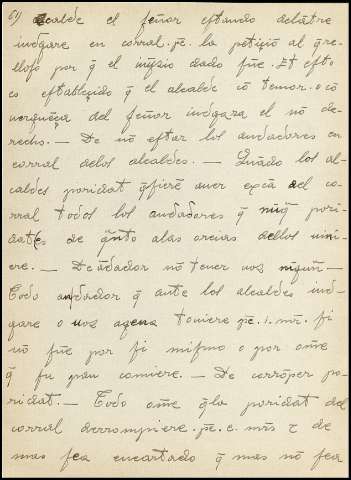 61) alcalde el señor estando delātre
iudgare en corral. pc. la petiçiō al qre-
lloso por q̄ el iuyzio dado fue. Et esto
es establesçido q̄ el alcalde cō temor. o cō
uerguēça del señor iudgara el nō de-
recho. — De nō estar los andadores en
corral delos alcaldes. — Quādo los al-
caldes poridat q̄sierē auer exca del co-
rral todos los andadores q̄ nīq̄ pori-
dat de q̄nto alas oreias dellos uini-
ere. — De ādador nō tener uos nīguā —
Todo andador q̄ ante los alcaldes iud-
gare o uos agena touiere pc. i. mr̄. si
nō fue por si mismo o por ome
q̄ su pan comiere. — De corrōper po-
ridat. — Todo ome q̄ la poridat del
corral derrompiere. pc. c. mrs τ de
mas sea encartado q̄ mas nō sea